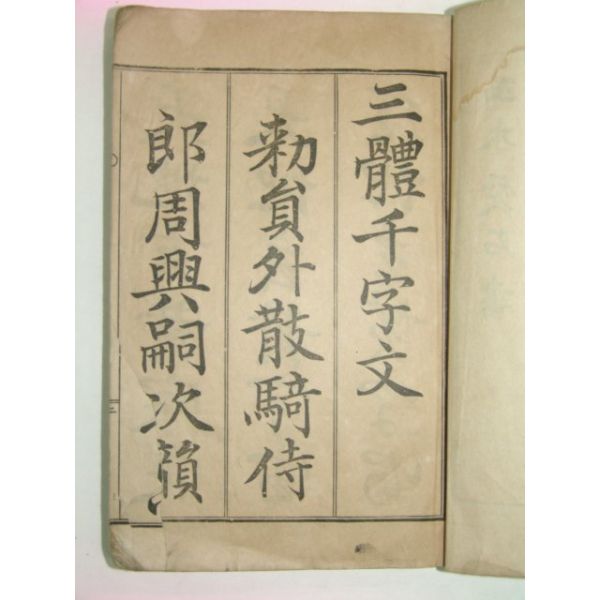 三體千字文
勅貟外散騎侍
郎周興嗣次韻